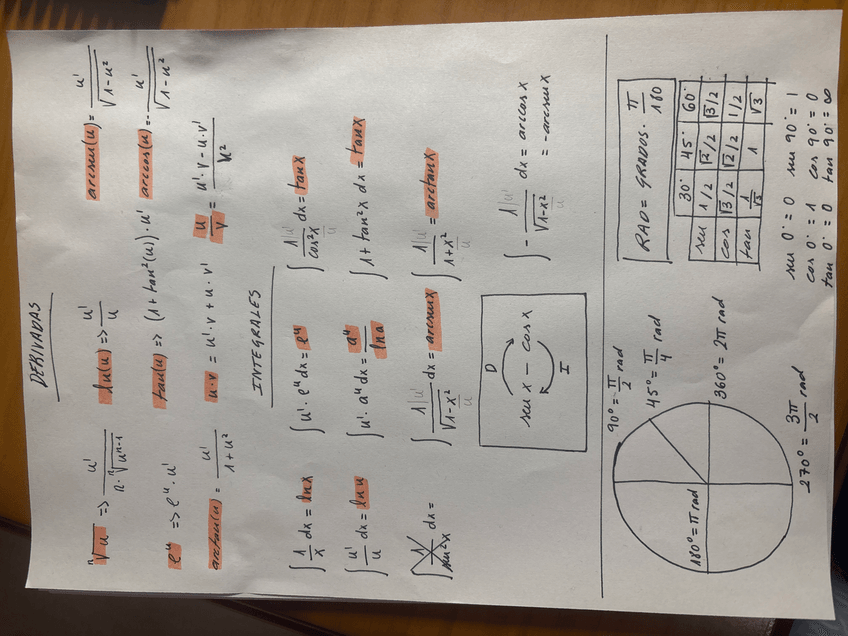 DERIVADAS
ⁿ√u => u'/(n·ⁿ√(uⁿ⁻¹))   ln(u) => u'/u   arcsen(u) = u'/√(1-u²)
eᵘ => eᵘ·u'   tan(u) => (1+tan²(u))·u'   arccos(u) = - u'/√(1-u²)
arctan(u) = u'/(1+u²)   u·v = u'·v + u·v'   u/v = (u'·v - u·v')/v²
INTEGRALES
∫ 1/x dx = ln x   ∫ u'·eᵘ dx = eᵘ   ∫ 1|u'/cos²x u dx = tan x
∫ u'/u dx = ln u   ∫ u'·aᵘ dx = aᵘ/ln a   ∫ 1+tan²x dx = tan x
∫ 1/sen²x dx =   ∫ 1|u'/√(1-x²) u dx = arcsen x   ∫ 1|u'/(1+x²) u = arctan x
D
sen x – cos x
I
∫ - 1|u'/√(1-x²) u dx = arccos x
= -arcsen x
90° = π/2 rad
45° = π/4 rad
180° = π rad
360° = 2π rad
270° = 3π/2 rad
RAD = GRADOS · π/180
30° 45° 60°
sen 1/2 √2/2 √3/2
cos √3/2 √2/2 1/2
tan 1/√3 1 √3
sen 0° = 0   sen 90° = 1
cos 0° = 1   cos 90° = 0
tan 0° = 0   tan 90° = ∞